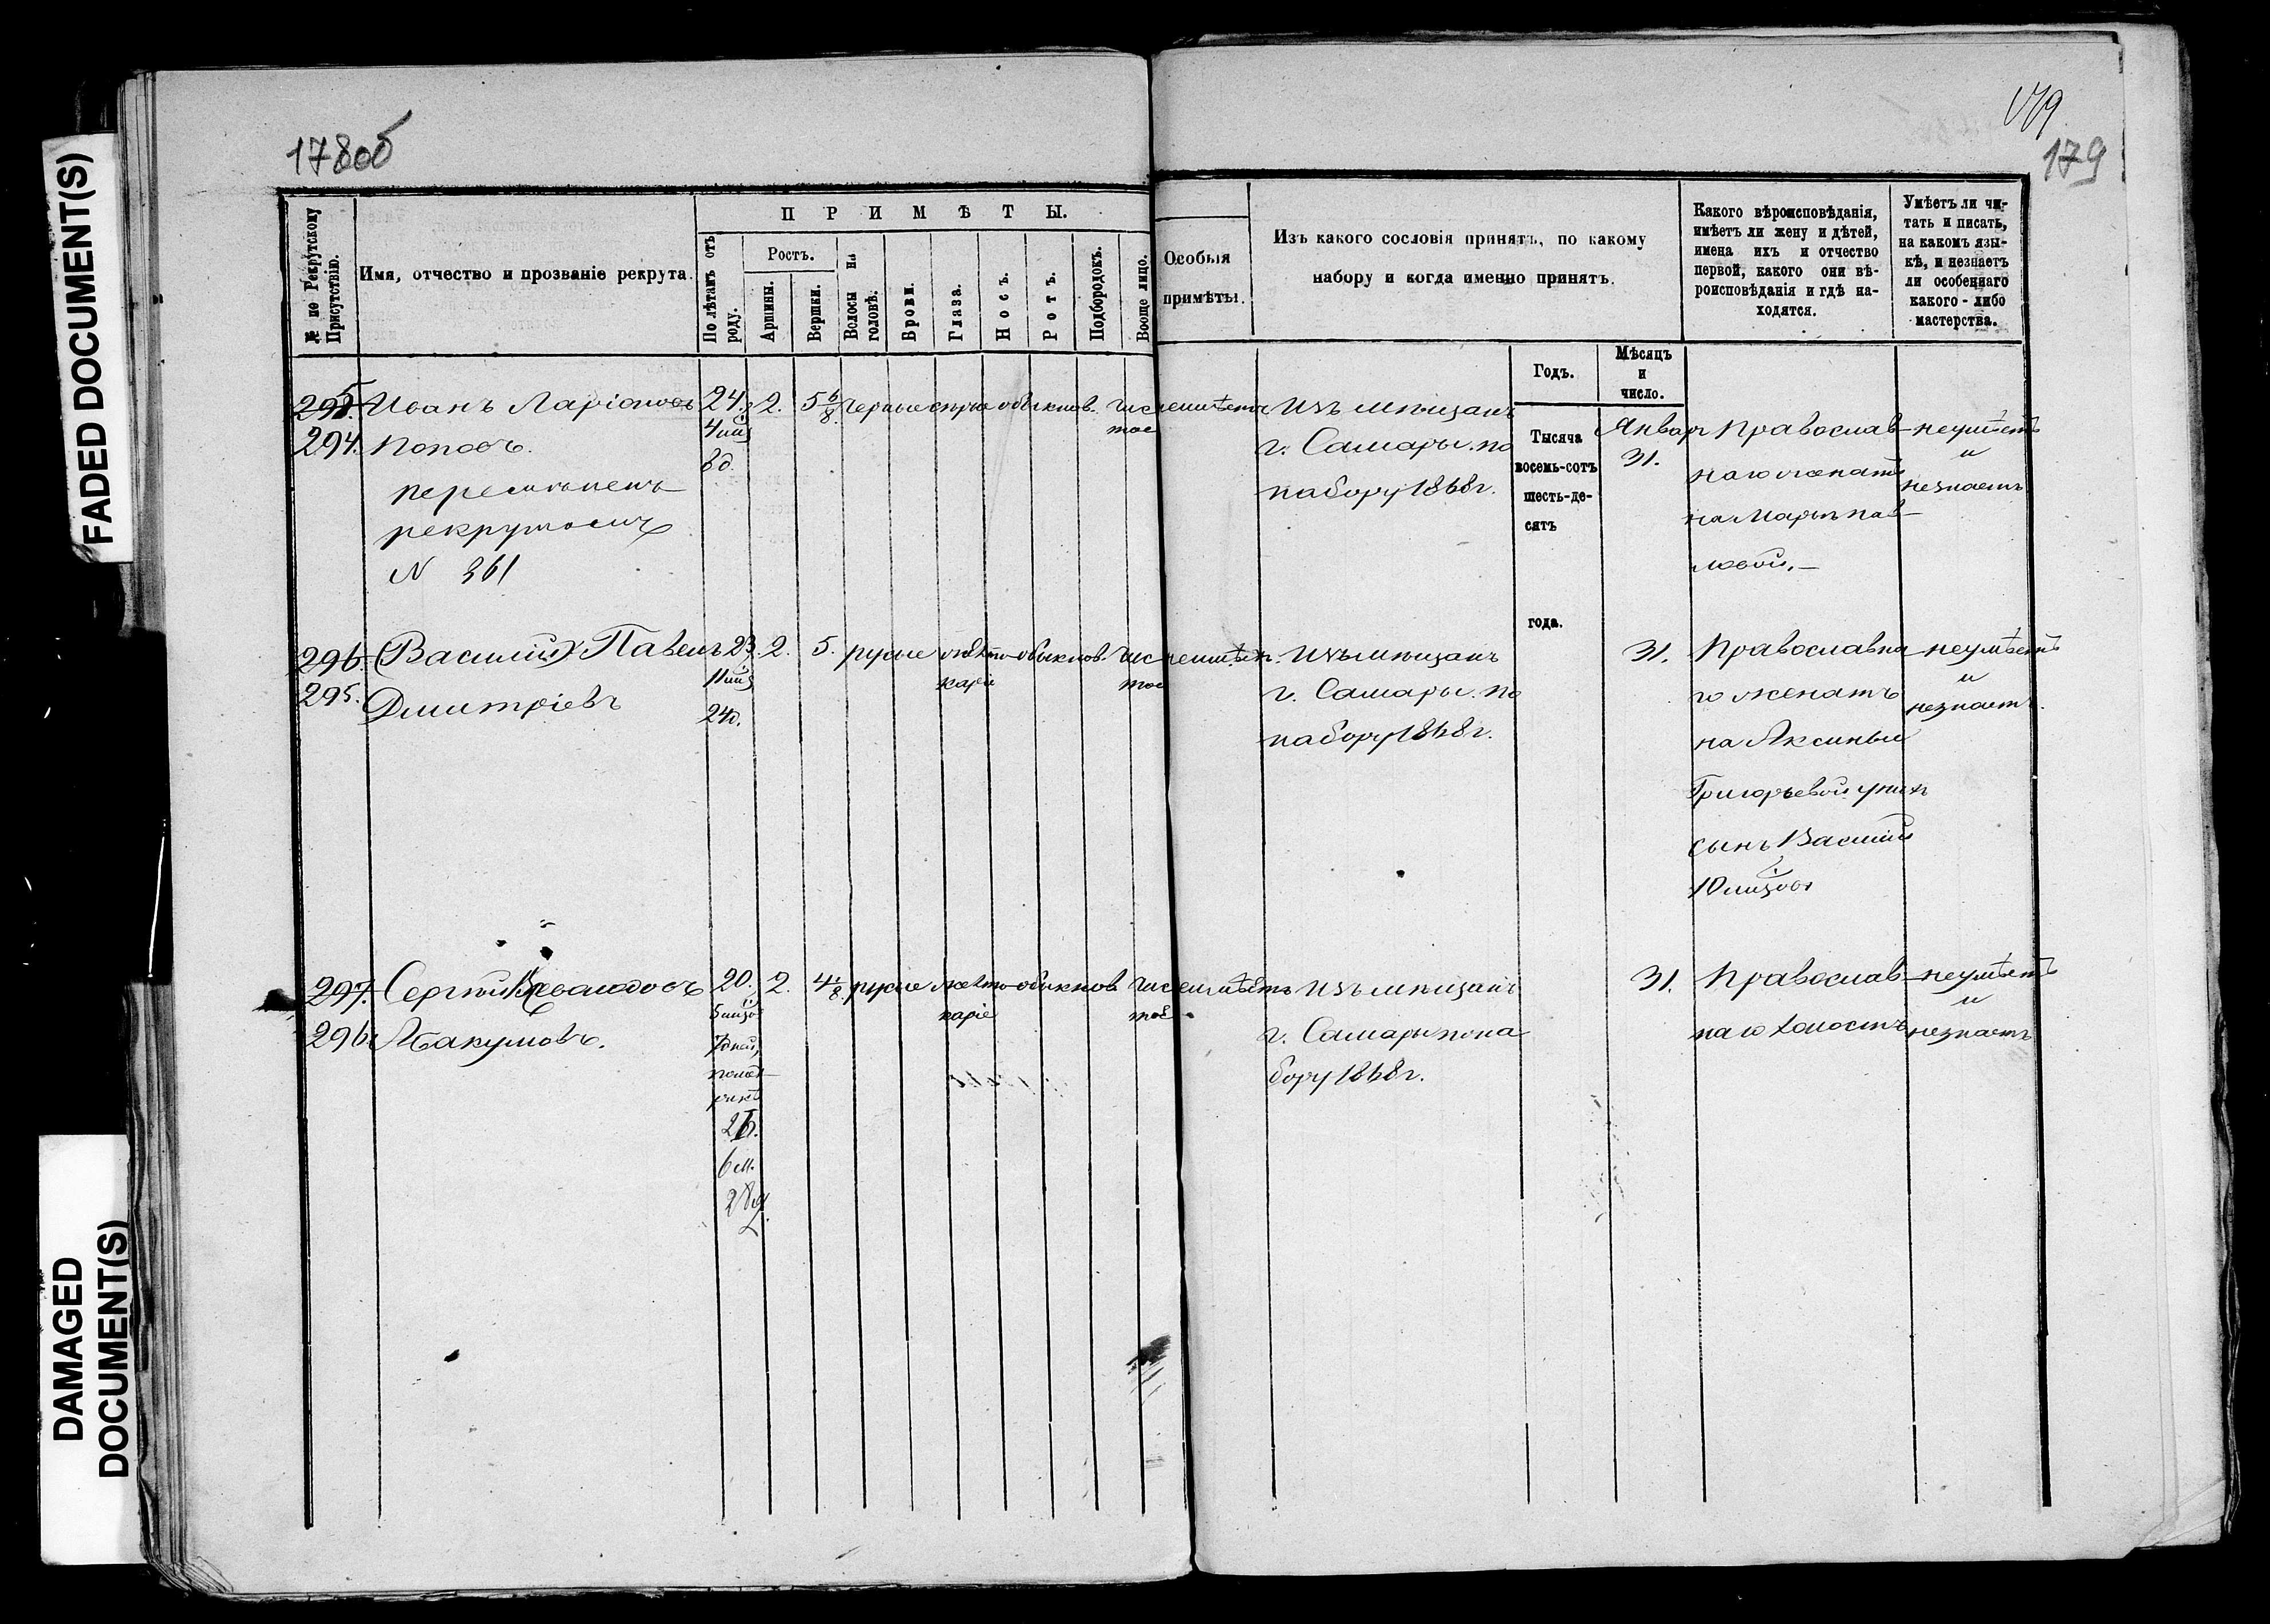 FADED DOCUMENT(S)
DAMAGED DOCUMENT(S)
178об
179
179
№ по Рекрутскому Присутствію.
Имя, отчество и прозваніе рекрута.
ПРИМѢТЫ.
По лѣтамъ отъ роду.
Ростъ.
Аршины.
Вершки.
Волосы на головѣ.
Брови.
Глаза.
Носъ.
Ротъ.
Подбородокъ.
Вообще лицо.
Особыя
примѣты.
Изъ какого сословія принятъ, по какому
набору и когда именно принятъ.
Какого вѣроисповѣданія,
имѣетъ ли жену и дѣтей,
имена ихъ и отчество
первой, какого они вѣ-
роисповѣданія и гдѣ на-
ходятся.
Умѣетъ ли чи-
тать и писать,
на какомъ язы-
кѣ, и незнаетъ
ли особеннаго
какого-либо
мастерства.
Годъ.
Мѣсяцъ
и
число.
Тысяча
восемь-сотъ
шесть-де-
сятъ
года.
295.
294.
Иванъ Ларіоновъ
Поповъ.
рекрутскимъ
N 361
24.
2.
5 6/8
черные
обыкнов.
чис
тое
неимѣетъ
Изъ мѣщанъ
г. Самары. по
набору 1868 г.
Январ
31.
Православ-
наго женатъ
на Марьѣ Пав-
ловой.-
неумѣетъ
и
незнаетъ
296.
295.
(Василій) Павелъ
Дмитріевъ
23.
24д.
2.
5.
русые
каріе
обыкнов.
чис
тое
неимѣет.
Изъ мѣщанъ
г. Самары. по
набору 1868 г.
31.
Православна-
го женатъ
на Аксиньи
Григорьевой у нихъ
сынъ Василій
10 мѣсяцовъ
неумѣетъ
и
незнаетъ.
297.
296.
Сергѣй
Абакумовъ.
20.
7дней,
21.
6 м.
28д.
2.
4 1/8
русые
каріе
обыкнов
чис
тое
неимѣетъ
Изъ мѣщанъ
г. Самары по на
бору 1868 г.
31.
Православ-
наго холостъ
неумѣетъ
и
незнаетъ